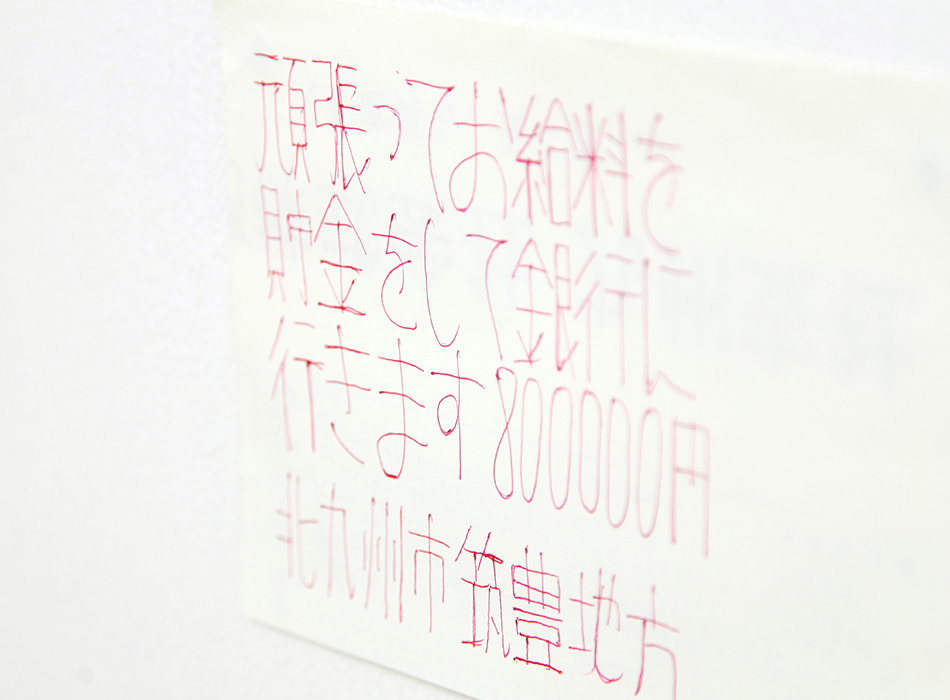 頑張ってお給料を
貯金をして銀行に
行きます800000円
北九州市筑豊地方